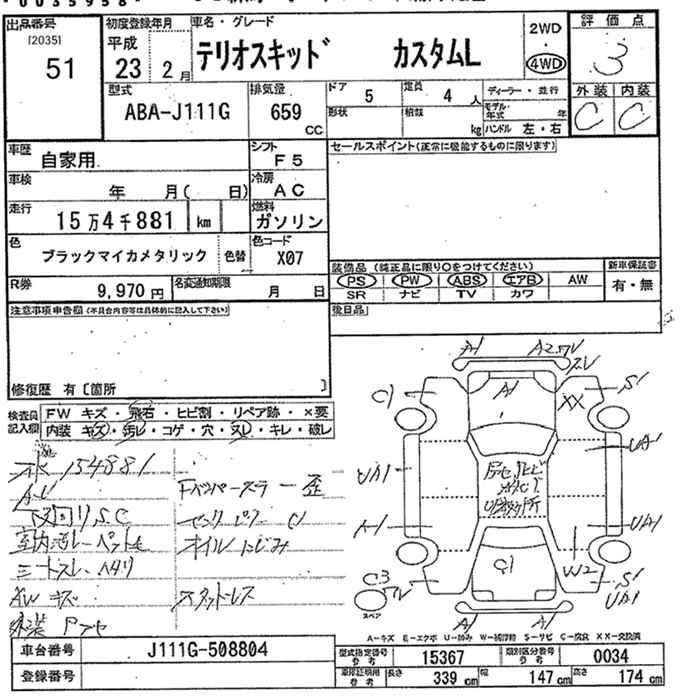 出品番号
[2035]
51
初度登録年月
平成
23 2月
車名・グレード
テリオスキッド カスタムL
2WD
4WD
評価点
3
型式
ABA-J111G
排気量
659
CC
ドア
5
定員
4 人
形状
積載
kg
ディーラー・並行
モデル・年式 年
ハンドル 左・右
外装 内装
C C
車歴
自家用
シフト
F5
セールスポイント(正常に機能するものに限ります)
車検
年 月( 日)
冷房
AC
走行
15万4千881 km
燃料
ガソリン
色
ブラックマイカメタリック
色替
色コード
X07
装備品 (純正品に限り○をつけてください)
PS PW ABS エアB AW
SR ナビ TV カワ
新車保証書
有・無
R券
9,970円
名変通知期限
月 日
注意事項申告欄(不具合内容等は具体的に記入して下さい)
後日品
修復歴 有〔箇所 〕
検査員記入欄
FW キズ・飛石・ヒビ割・リペア跡・×要
内装 キズ・汚レ・コゲ・穴・ヌレ・キレ・破レ
154881
下回りS.C
室内汚レ ペットモ
シートスレ ヘタリ
AWキズ
Fバンパーステー歪
センターピラー C1
オイルにじみ
スタットレス
A1
A1
C1
XX
S1
UA1
UA1
A1
UA1
C3
C1
W2
S1
UA1
A1
A1
スペア
A-キズ E-エクボ U-凹み W-補修跡 S-サビ C-腐食 XX-交換済
車台番号
J111G-508804
型式指定番号
参考
15367
類別区分番号
参考
0034
登録番号
車庫証明用
参考
長さ 339 cm
幅 147 cm
高さ 174 cm